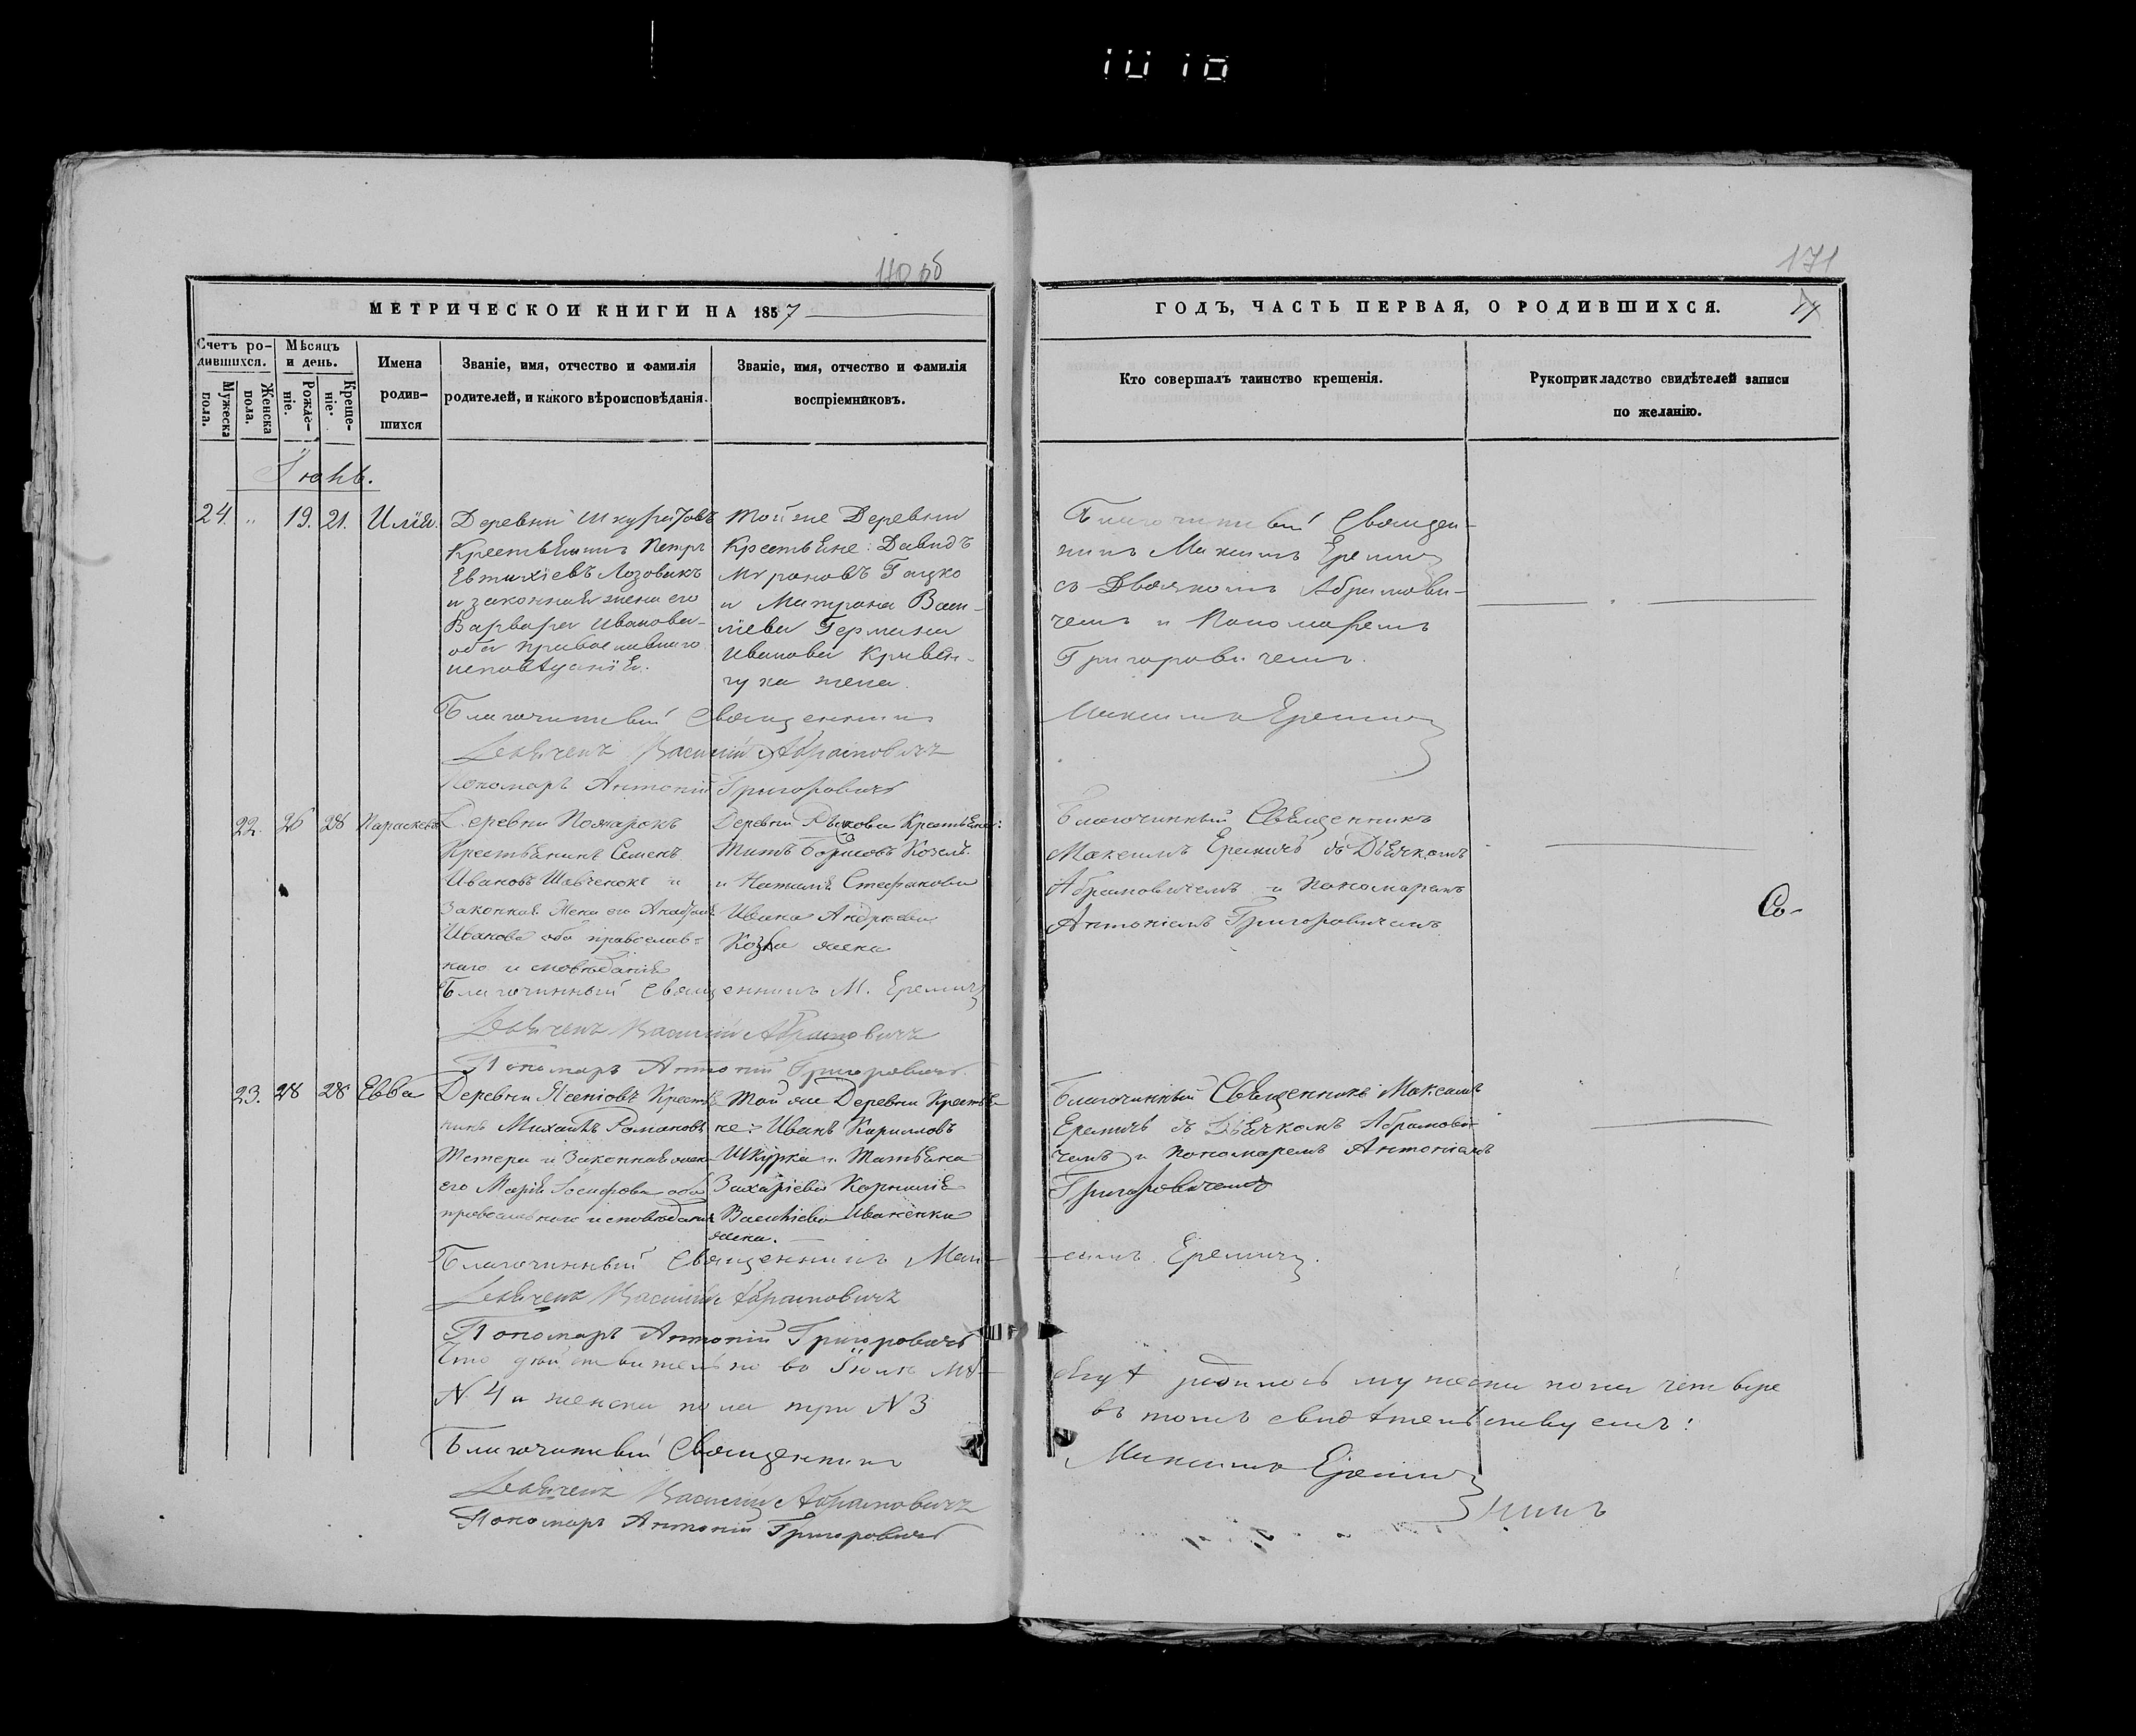 170 об
171
МЕТРИЧЕСКОИ КНИГИ НА 1857
ГОДЪ, ЧАСТЬ ПЕРВАЯ, О РОДИВШИХСЯ.
Счетъ ро-
дившихся.
Мѣсяцъ
и день.
Мужеска
пола.
Женска
пола.
Рожде-
ніе.
Креще-
ніе.
Имена
родив-
шихся
Званіе, имя, отчество и фамилія
родителей, и какого вѣроисповѣданія.
Званіе, имя, отчество и фамилія
воспріемниковъ.
Кто совершалъ таинство крещенія.
Рукоприкладство свидѣтелей записи
по желанію.
Іюнь.
24. „ 19. 21. Илія.
Деревни Шкуратовъ
Крестьянинъ Петръ
Евтихіевъ Лозовикъ
и законная жена его
Варвара Иванова
оба православнаго
исповѣданія.
Той же Деревни
Крестьяне: Давидъ
Мироновъ Гацко
и Матрона Васи-
ліева Германа
Иванова
жена.
Благочинный Священ-
никъ Максимъ Еремичъ
съ Дьячкомъ Абрамови-
чемъ и Пономаремъ
Григоровичемъ.
Благочинный Священникъ
Максимъ Еремичъ
Дьячекъ Василій Абрамовичъ
Пономарь Антоній Григоровичъ
22. 26 28 Параскева
Деревни Пожарокъ
Крестьянинъ Семенъ
Ивановъ Шевченокъ и
Законная Жена его
Иванова оба православ-
наго исповѣданія
Деревни Крестьяне:
Титъ Борисовъ Козелъ
и Наталія Стефанова
Ивана Андреева
Козла жена
Благочинный Священникъ
Максимъ Еремичъ съ Дьячкомъ
Абрамовичемъ и Пономаремъ
Антоніемъ Григоровичемъ
Со-
Благочинный Священникъ М. Еремичъ
Дьячекъ Василій Абрамовичъ
Пономарь Антоній Григоровичъ
23. 28 28 Евва
Деревни Крестья-
нинъ Михаилъ Романовъ
Тетера и Законная жена
его Марія Іосифова оба
православнаго исповѣданія
Той же Деревни Крестья-
не: Иванъ Кирилловъ
Шкурка и Татьяна
Захаріева Корнилія
Василіева Иваненки
жена.
Благочинный Священникъ Максимъ
Еремичъ съ Дьячкомъ Абрамови-
чемъ и Пономаремъ Антоніемъ
Григоровичемъ
Благочинный Священникъ Мак-
симъ Еремичъ.
Дьячекъ Василій Абрамовичъ
Пономарь Антоній Григоровичъ
Что дѣйствительно во Іюнѣ мѣ-
сяцѣ родилось мужеска пола четыре
N. 4 и женска пола три N 3
въ томъ свидѣтельствуемъ:
Благочинный Священникъ
Максимъ Еремичъ
Дьячекъ Василій Абрамовичъ
Пономарь Антоній Григоровичъ
никъ